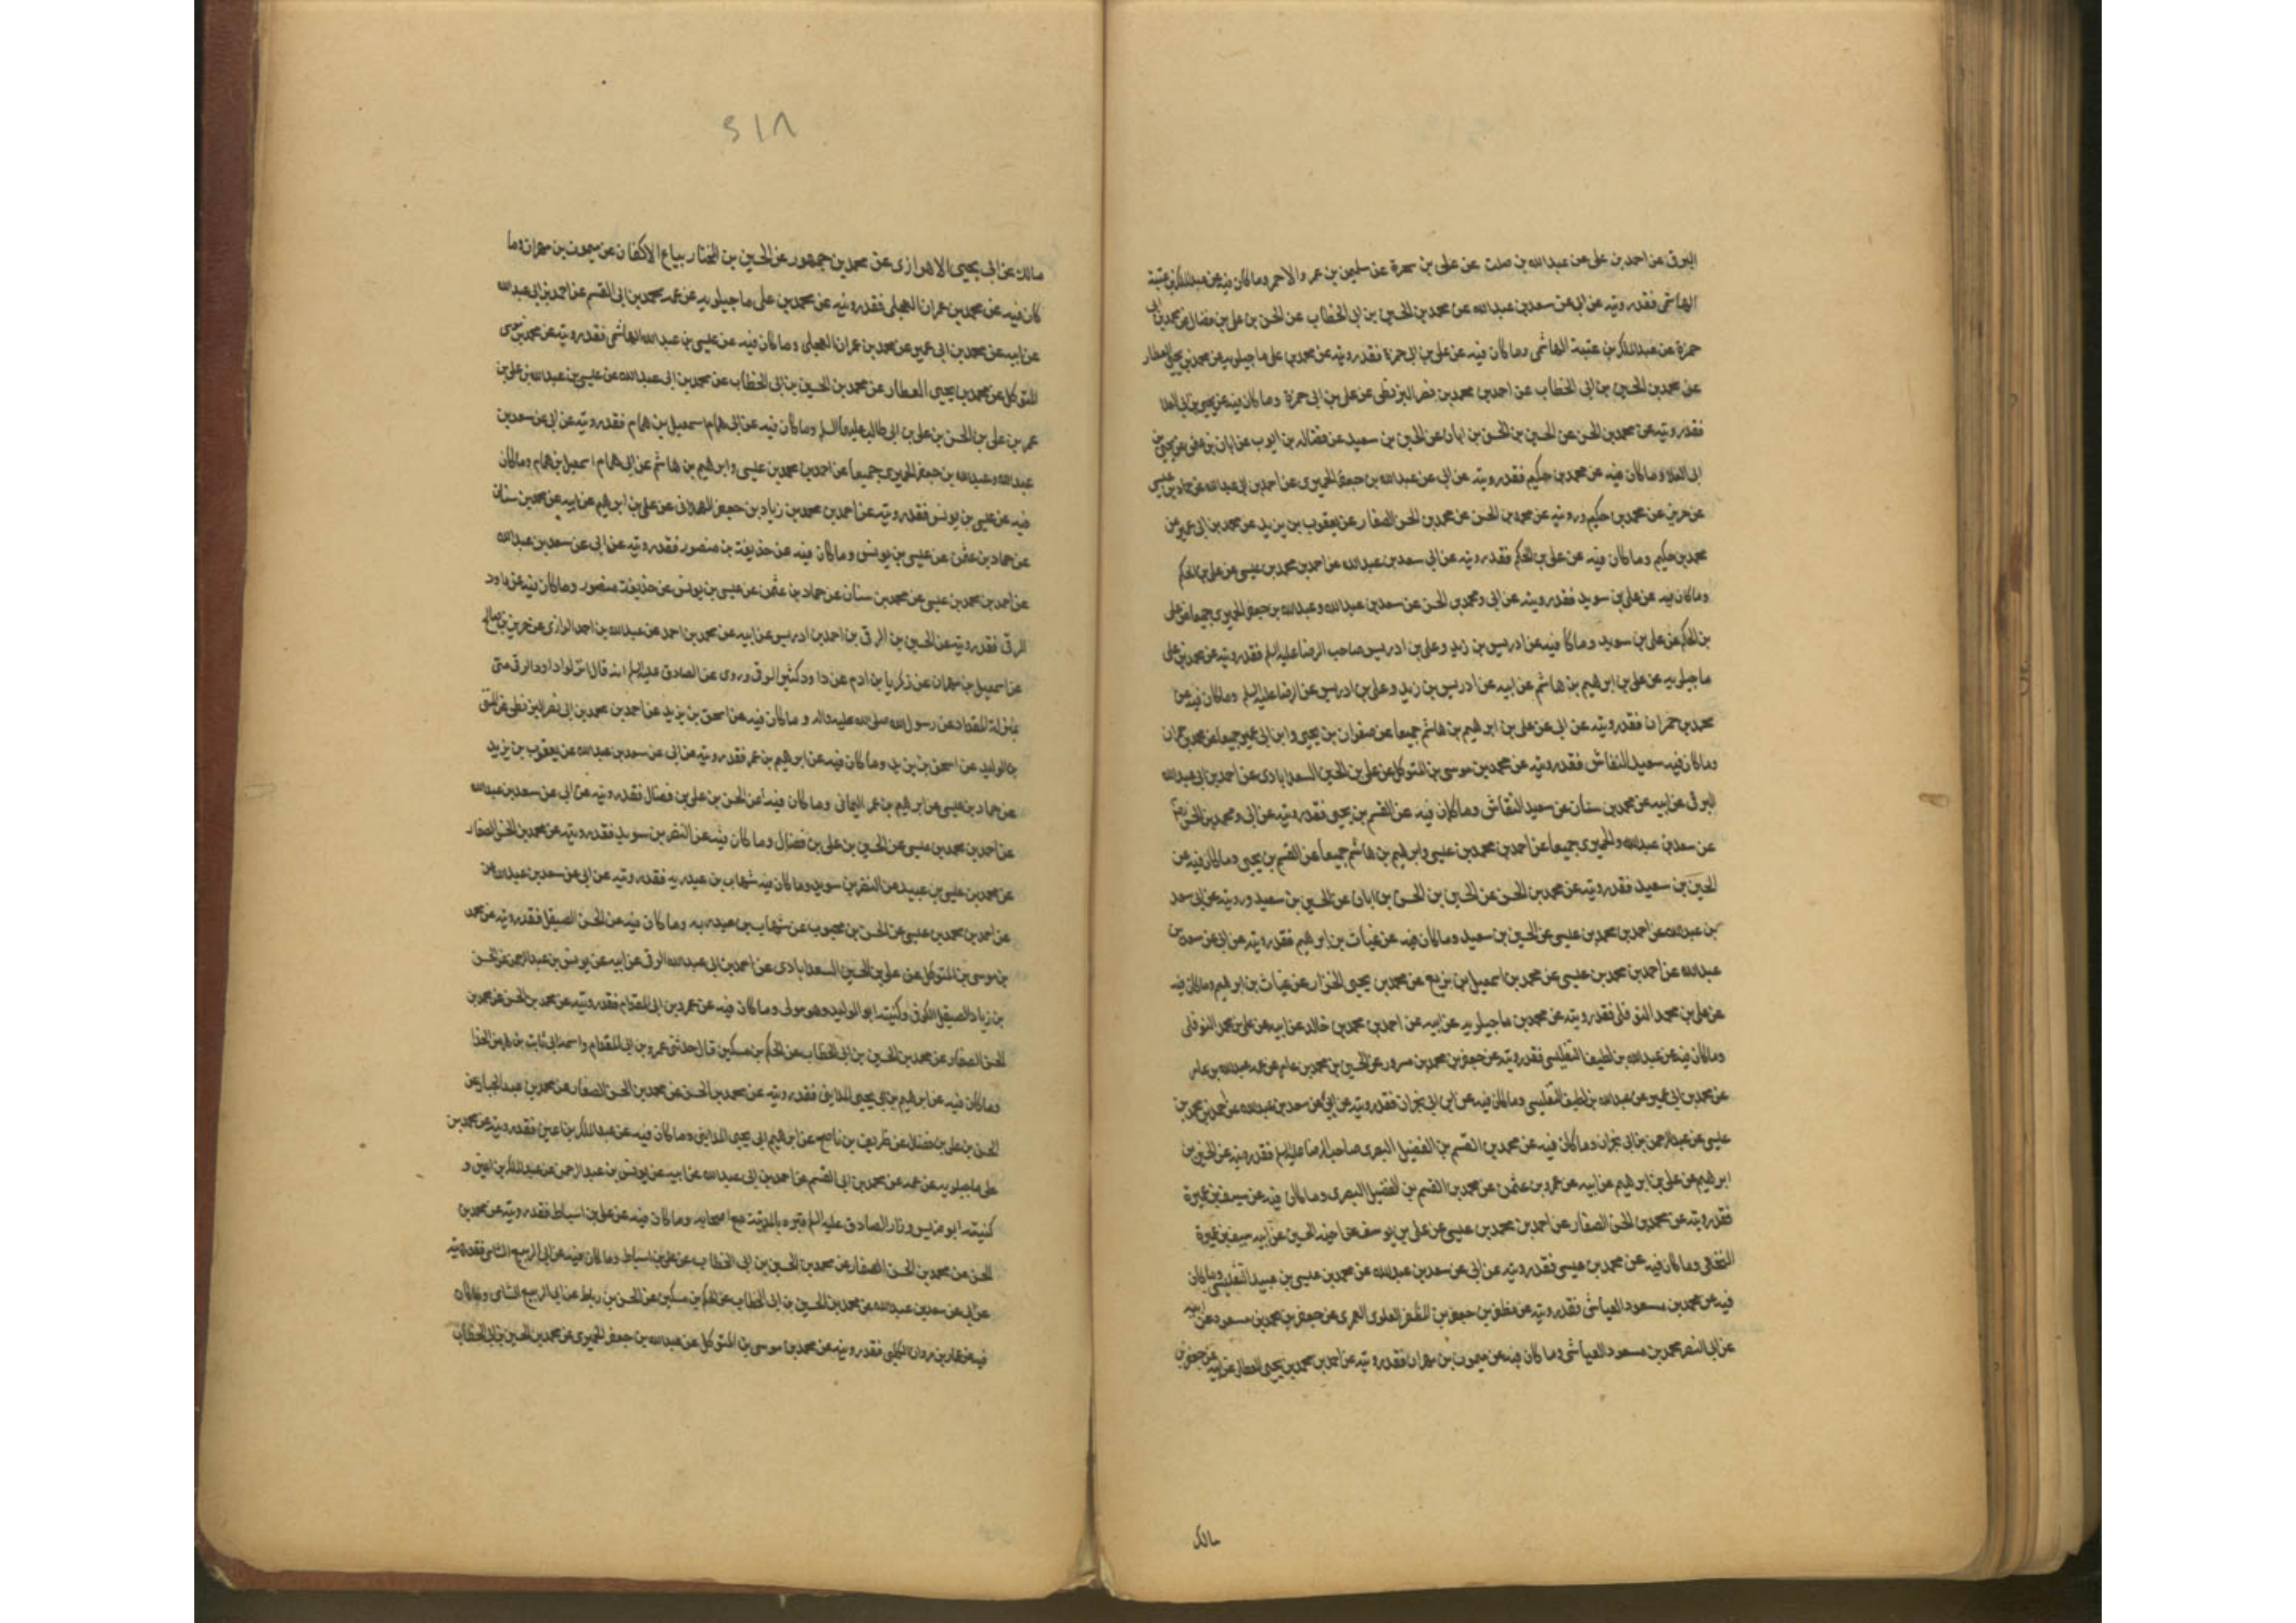 البرقى عن احمد بن على عن عبدالله بن صلت عن على بن سمرة عن سليمن بن عمر والاحمر وما كان فيه عن عبدالملك بن عتبة
الهاشمى فقد رويته عن ابى عن سعد بن عبدالله عن محمد بن الحسين بن ابى الخطاب عن الحسن بن على بن فضال عن محمد بن ابى
حمزة عن عبدالملك بن عتبة الهاشمى وما كان فيه عن على بن ابى حمزة فقد رويته عن محمد بن على ماجيلويه عن محمد بن يحيى العطار
عن محمد بن الحسين بن ابى الخطاب عن احمد بن محمد بن نصر البزنطى عن على بن ابى حمزة وما كان فيه عن يحيى بن ابى العلا
فقد رويته عن محمد بن الحسن عن الحسين بن الحسن بن ابان عن الحسين بن سعيد عن فضالة بن ايوب عن ابان بن عثمن عن يحيى بن
ابى العلا وما كان فيه عن محمد بن حكيم فقد رويته عن ابى عن عبدالله بن جعفر الحميرى عن احمد بن ابى عبدالله عن حماد بن عيسى
عن حريز عن محمد بن حكيم ورويته عن محمد بن الحسن عن محمد بن الحسن الصفار عن يعقوب بن يزيد عن محمد بن ابى عمير عن
محمد بن حكيم وما كان فيه عن على بن الحكم فقد رويته عن ابى سعد بن عبدالله عن احمد بن محمد بن عيسى عن على بن الحكم
وما كان فيه عن على بن سويد فقد رويته عن ابى ومحمد بن الحسن عن سعد بن عبدالله وعبدالله بن جعفر الحميرى جميعا عن على
بن الحكم عن على بن سويد وما كا فيه عن ادريس بن زيد وعلى بن ادريس صاحب الرضا عليه السلم فقد رويته عن محمد بن على
ماجيلويه عن على بن ابرهيم بن هاشم عن ابيه عن ادريس بن زيد وعلى بن ادريس عن الرضا عليه السلم وما كان فيه عن
محمد بن حمران فقد رويته عن ابى عن على بن ابرهيم بن هاشم جميعا عن صفوان بن يحيى وابن ابى عمير جميعا عن محمد بن حمران
وما كان فيه سعيد النقاش فقد رويته عن محمد بن موسى بن المتوكل عن على بن الحسين السعدابادى عن احمد بن ابى عبدالله
البرقى عن ابيه عن محمد بن سنان عن سعيد النقاش وما كان فيه عن القسم بن يحيى فقد رويته عن ابى ومحمد بن الحسن
عن سعد بن عبدالله والحميرى جميعا عن احمد بن محمد بن عيسى وابرهيم بن هاشم جميعا عن القسم بن يحيى وما كان فيه عن
الحسين بن سعيد فقد رويته عن محمد بن الحسن عن الحسين بن الحسن بن ابان عن الحسين بن سعيد ورويته عن ابى سعد
بن عبدالله عن احمد بن محمد بن عيسى عن الحسين بن سعيد وما كان فيه عن غياث بن ابرهيم فقد رويته عن ابى عن سعد بن
عبدالله عن احمد بن محمد بن عيسى عن محمد بن اسمعيل بن بزيع عن محمد بن يحيى الخزاز عن غياث بن ابرهيم وما كان فيه
عن على بن محمد النوفلى فقد رويته عن محمد بن ماجيلويه عن ابيه عن احمد بن محمد بن خالد عن ابيه عن على بن محمد النوفلى
وما كان فيه عن عبدالله بن لطيف التفليسى فقد رويته عن جعفر بن محمد بن مسرور عن الحسين بن محمد بن عامر عن عمه عبدالله بن عامر
عن محمد بن ابى عمير عن عبدالله بن لطيف التفليسى وما كان فيه عن ابن ابى نجران فقد رويته عن ابى عن سعد بن عبدالله عن احمد بن محمد بن
عيسى عن عبدالرحمن بن ابى نجران وما كان فيه عن محمد بن القسم بن الفضيل البصرى صاحب الرضا عليه السلم فقد رويته عن الحسين بن
ابرهيم عن على بن ابرهيم عن ابيه عن عمرو بن عثمن عن محمد بن القسم بن الفضيل البصرى وما كان فيه عن سيف بن عميرة
فقد رويته عن محمد بن الحسن الصفار عن احمد بن محمد بن عيسى عن على بن يوسف عن اخيه الحسين عن ابيه سيف بن عميرة
النخعى وما كان فيه عن محمد بن عيسى فقد رويته عن ابى عن سعد بن عبدالله عن محمد بن عيسى بن عبيد وما كان
فيه عن محمد بن مسعود العياشى فقد رويته عن مظفر بن جعفر بن المظفر العلوى العمرى عن جعفر بن محمد بن مسعود عن ابيه
عن ابى النصر محمد بن مسعود العياشى وما كان فيه عن ميمون بن مهران فقد رويته عن احمد بن محمد بن يحيى العطار عن ابيه عن جعفر بن
مالك
٢١٨
مالك عن ابى يحيى الاهوازى عن محمد بن جمهور عن الحسين بن المختار بياع الاكفان عن ميمون بن مهران وما
كان فيه عن محمد بن عمران العجلى فقد رويته عن محمد بن على ماجيلويه عن عمه محمد بن ابى القسم عن احمد بن ابى عبدالله
عن ابيه عن محمد بن ابى عمير عن محمد بن عمران العجلى وما كان فيه عن عيسى بن عبدالله الهاشمى فقد رويته عن محمد بن موسى
المتوكل عن محمد بن يحيى العطار عن محمد بن الحسين بن ابى الخطاب عن محمد بن ابى عبدالله عن عيسى بن عبدالله بن على بن
عمر بن على بن الحسن بن على بن ابى طالب عليهم السلم وما كان فيه عن ابى همام اسمعيل بن همام فقد رويته عن ابى عن سعد بن
عبدالله وعبدالله بن جعفر الحميرى جميعا عن احمد بن محمد بن عيسى وابرهيم بن هاشم عن ابى همام اسمعيل بن همام وما كان
فيه عن عيسى بن يونس فقد رويته عن احمد بن محمد بن زياد بن جعفر الهمدانى عن على بن ابرهيم عن ابيه عن محمد بن سنان
عن حماد بن عثمن عن عيسى بن يونس وما كان فيه عن حذيفة بن منصور فقد رويته عن ابى عن سعد بن عبدالله
عن احمد بن محمد بن عيسى عن محمد بن سنان عن حماد بن عثمن عن عيسى بن يونس عن حذيفة منصور وما كان فيه عن داود
الرقى فقد رويته عن الحسين بن الرقى بن احمد بن ادريس عن ابيه عن محمد بن احمد عن عبدالله بن احمد الرازى عن حريز بن صالح
عن اسمعيل بن مهران عن زكريا بن ادم عن داود كثير الرقى وروى عن الصادق عليه السلم انه قال انزلوا داود الرقى منى
بمنزلة المقداد عن رسول الله صلى الله عليه واله وما كان فيه عن اسحق بن يزيد عن احمد بن محمد بن ابى نصر البزنطى عن المثنى
بن الوليد عن اسحق بن يزيد وما كان فيه عن ابرهيم بن عمر فقد رويته عن ابى عن سعد بن عبدالله عن يعقوب بن يزيد
عن حماد بن عيسى عن ابرهيم بن عمر اليمانى وما كان فيه عن الحسن بن على بن فضال فقد رويته عن ابى عن سعد بن عبدالله
عن احمد بن محمد بن عيسى عن الحسن بن على بن فضال وما كان فيه عن النضر بن سويد فقد رويته عن محمد بن الحسن الصفار
عن محمد بن عيسى بن عبيد عن النضر بن سويد وما كان فيه شهاب بن عبدربه فقد رويته عن ابى عن سعد بن عبدالله
عن احمد بن محمد بن عيسى عن الحسن بن محبوب عن شهاب بن عبدربه وما كان فيه عن الحسن الصيقل فقد رويته عن محمد
بن موسى بن المتوكل عن على بن الحسين السعدابادى عن احمد بن ابى عبدالله البرقى عن ابيه عن يونس بن عبدالرحمن عن الحسن
بن زياد الصيقل الكوفى وكنيته ابو الوليد وهو مولى وما كان فيه عن عمرو بن ابى المقدام فقد رويته عن محمد بن الحسن عن محمد بن
الحسن الصفار عن محمد بن الحسين بن ابى الخطاب عن الحكم بن مسكين قال حدثنى عمرو بن ابى المقدام واسم ابى ثابت بن هرمز الحداد
وما كان فيه عن ابرهيم بن ابى يحيى المداينى فقد رويته عن محمد بن الحسن عن محمد بن الحسن الصفار عن محمد بن عبدالجبار عن
الحسن بن على بن فضال عن ظريف بن ناصح عن ابرهيم ابى يحيى المداينى وما كان فيه عن عبدالملك بن اعين فقد رويته عن محمد بن
على ماجيلويه عن عمه عن محمد بن ابى القسم عن احمد بن ابى عبدالله عن ابيه عن يونس بن عبدالرحمن عن عبدالملك بن اعين و
كنيته ابو ضريس وزار الصادق عليه السلم قبره بالمدينة مع اصحابه وما كان فيه عن على بن اسباط فقد رويته عن محمد بن
الحسن عن محمد بن الحسن الصفار عن محمد بن الحسين بن ابى الخطاب عن على بن اسباط وما كان فيه عن ابى الربيع الشامى فقد رويته
عن ابى عن سعد بن عبدالله عن محمد بن الحسين بن ابى الخطاب عن الحكم بن مسكين عن الحسن بن رباط عن ابى الربيع الشامى وما كان
فيه عن عمار بن مروان الكلبى فقد رويته عن محمد بن موسى بن المتوكل عن عبدالله بن جعفر الحميرى عن محمد بن الحسين بن ابى الخطاب